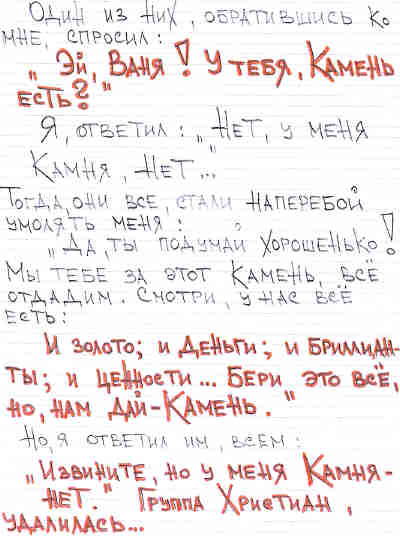 Один из них, обратившись ко
мне, спросил:
„Эй, Ваня! У тебя, Камень
есть?"
Я, ответил: „Нет, у меня
Камня, нет..."
Тогда, они все, стали наперебой
умолять меня:
„Да, ты подумай хорошенько!
Мы тебе за этот Камень, всё
отдадим. Смотри, у нас всё
есть:
И золото; и деньги; и бриллиан-
ты; и ценности... Бери это всё,
но, нам дай-Камень."
Но, я ответил им, всем:
„Извините, но у меня Камня-
нет." Группа Христиан,
удалилась...